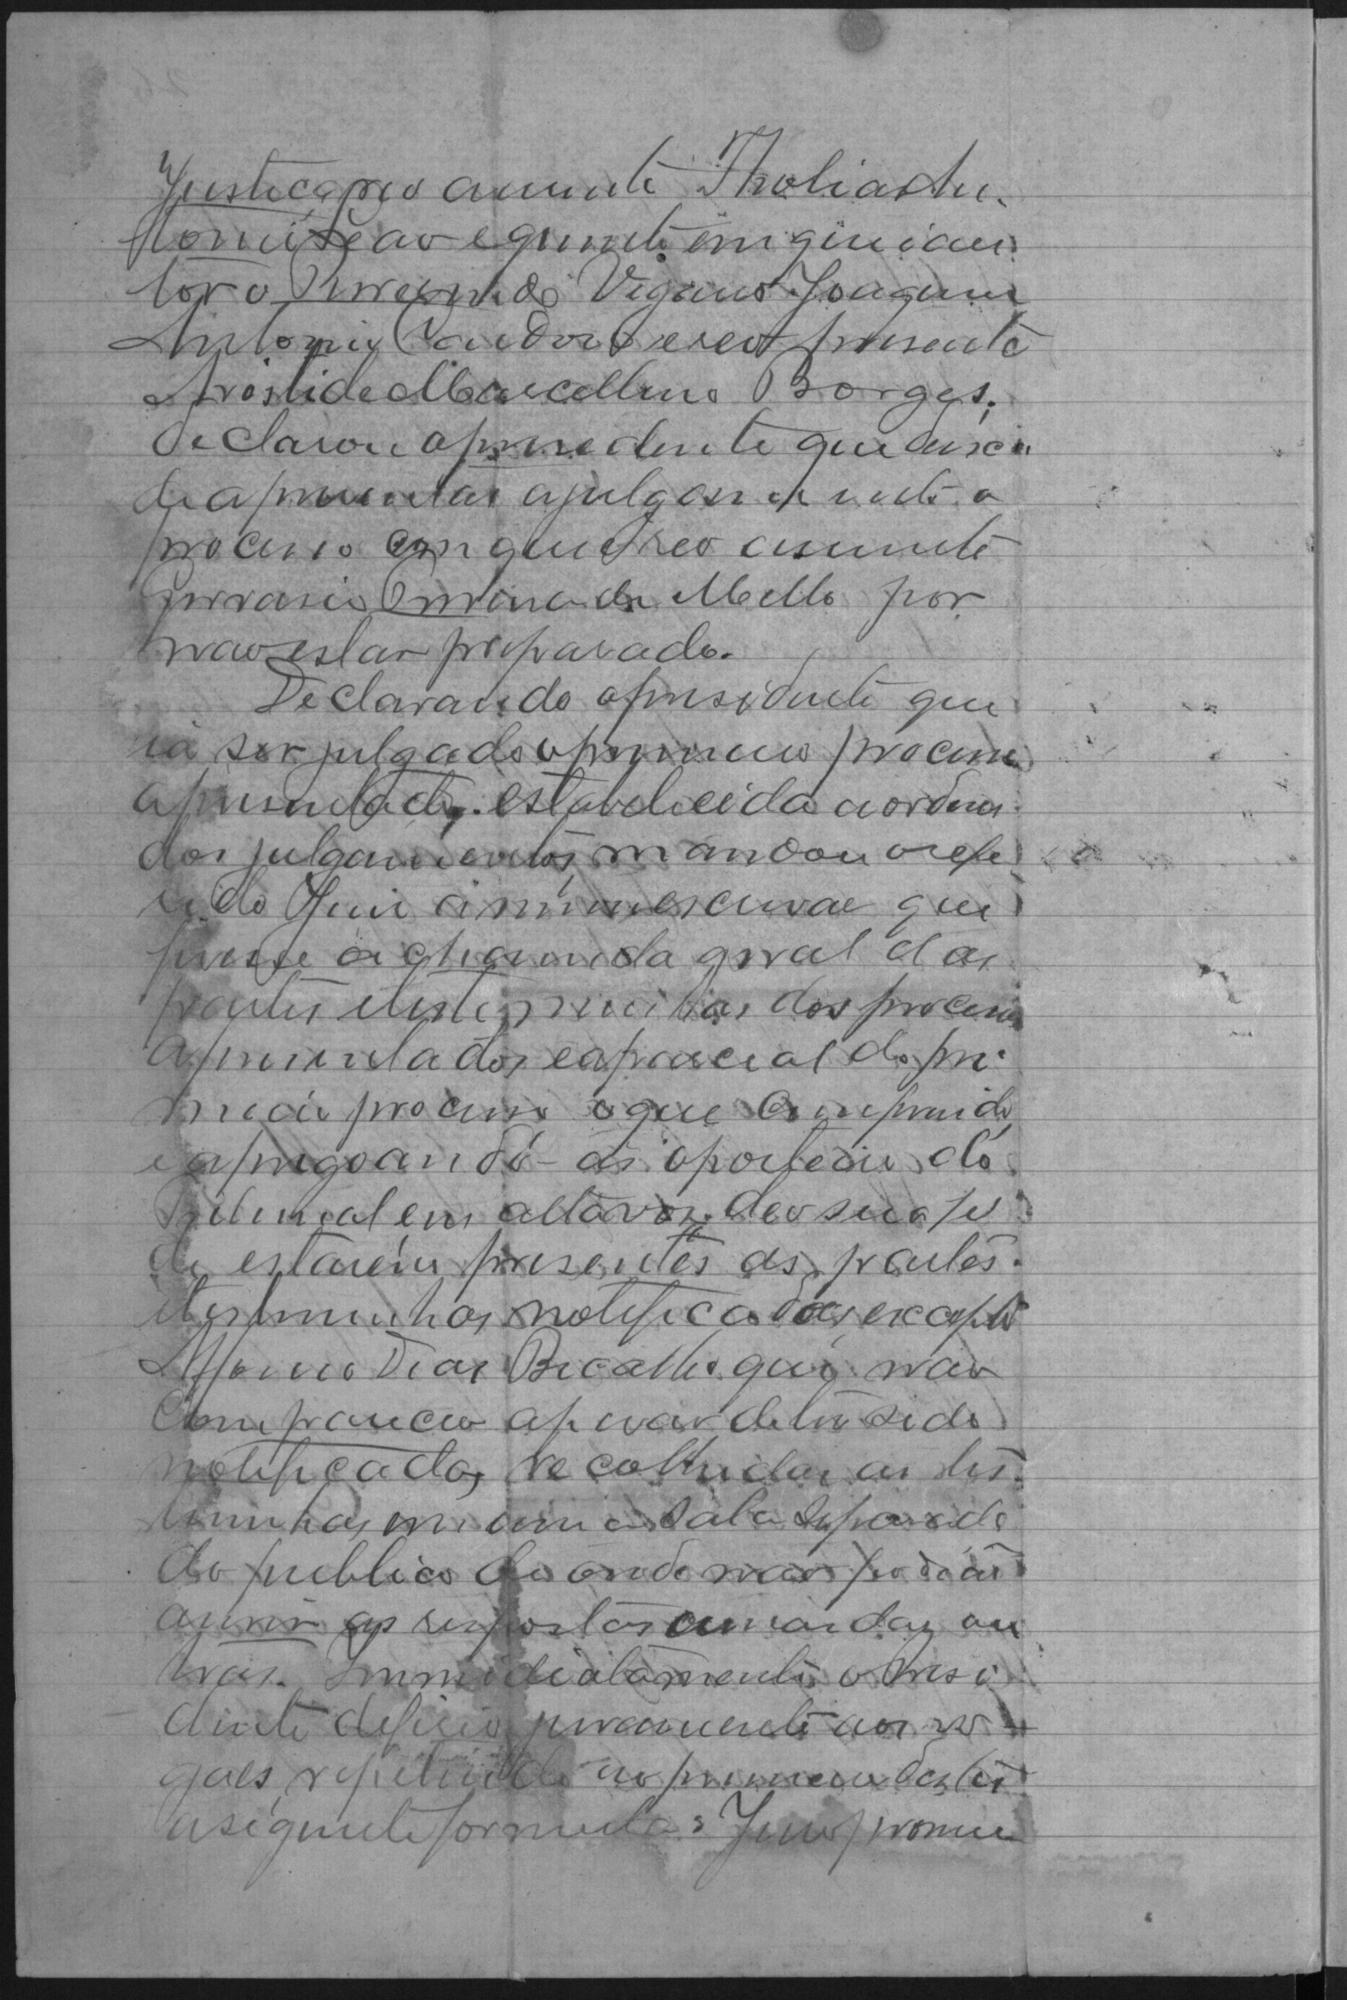 Justiça, reo auzente
e o seguinte em que é au-
tor o Reverendo Vigario Joaquim
Antonio e reo prezente
Aristide Marcellino Borges.
Declarou o prezidente que deixa
de aprezentar a julgamento o
processo em que é reo auzente
de Mello por
nao estar preparado.
Declarando o presidente que
ia ser julgado o primeiro processo
aprezentado, estabelecida a ordem
dos julgamentos, mandou o refe-
rido Juiz a mim escrivao que
fizesse a chamada geral das
partes e testemunhas dos processos
aprezentados e a parcial do pri-
meiro processo o que cumprindo
e apregoando-as o porteiro do
Tribunal em alta voz, deo sua fé
de estarem presentes as partes
e testimunhas notificadas, excepto
Dias Bicalho que nao
compareceo apezar de ter sido
notificado, recolhidas as tes-
timunhas em uma sala separada
do publico de onde nao podiao
ouvir as respostas umas das ou-
tras. Immediatamente o Presi-
dente deferio juramento aos vo-
gaes, repetindo ao primeiro destes
a seguinte formula: Juro pronun